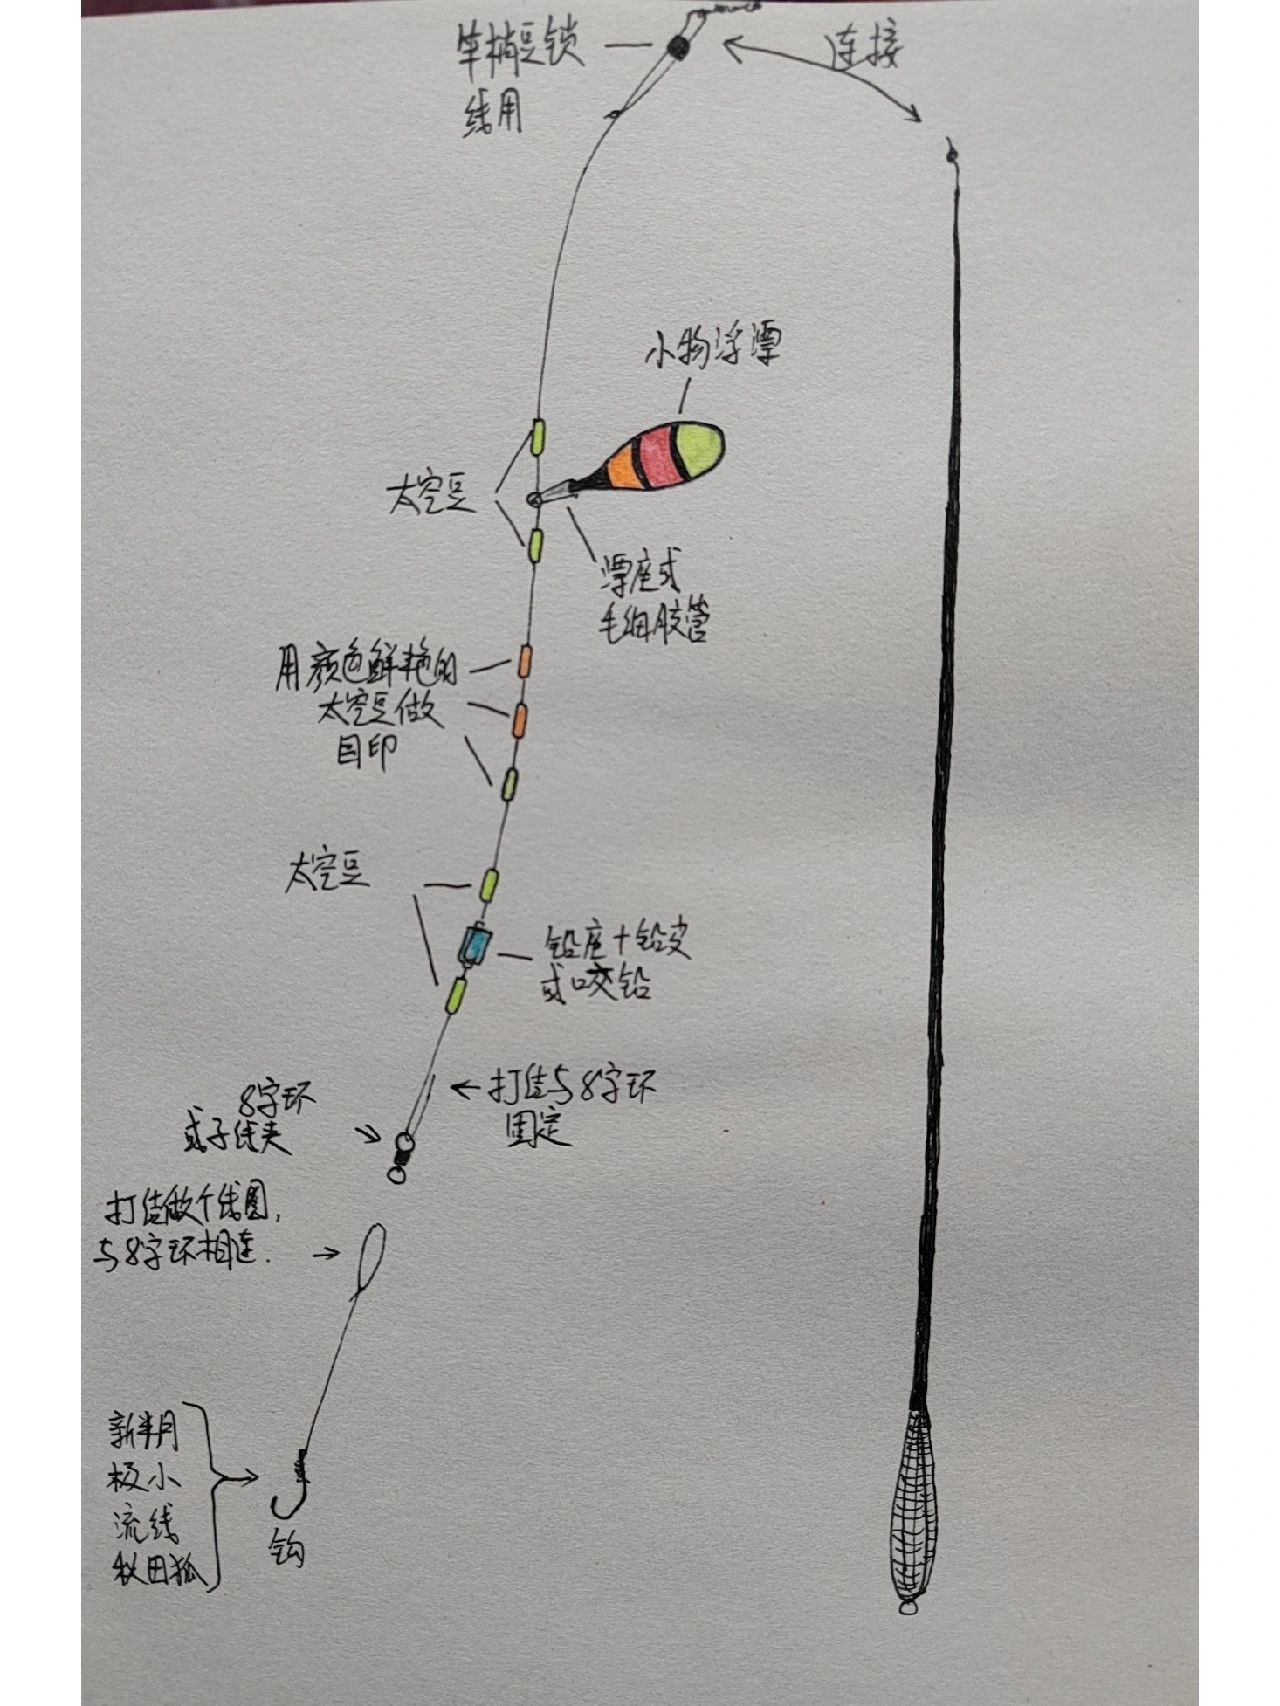 竿梢豆锁
线用
连接
小物浮漂
太空豆
漂座或
毛细胶管
用颜色鲜艳的
太空豆做
目印
太空豆
铅座+铅皮
或咬铅
打结与8字环
固定
8字环
或子线夹
打结做个线圈,
与8字环相连.
新半月
极小
流线
秋田狐
钩